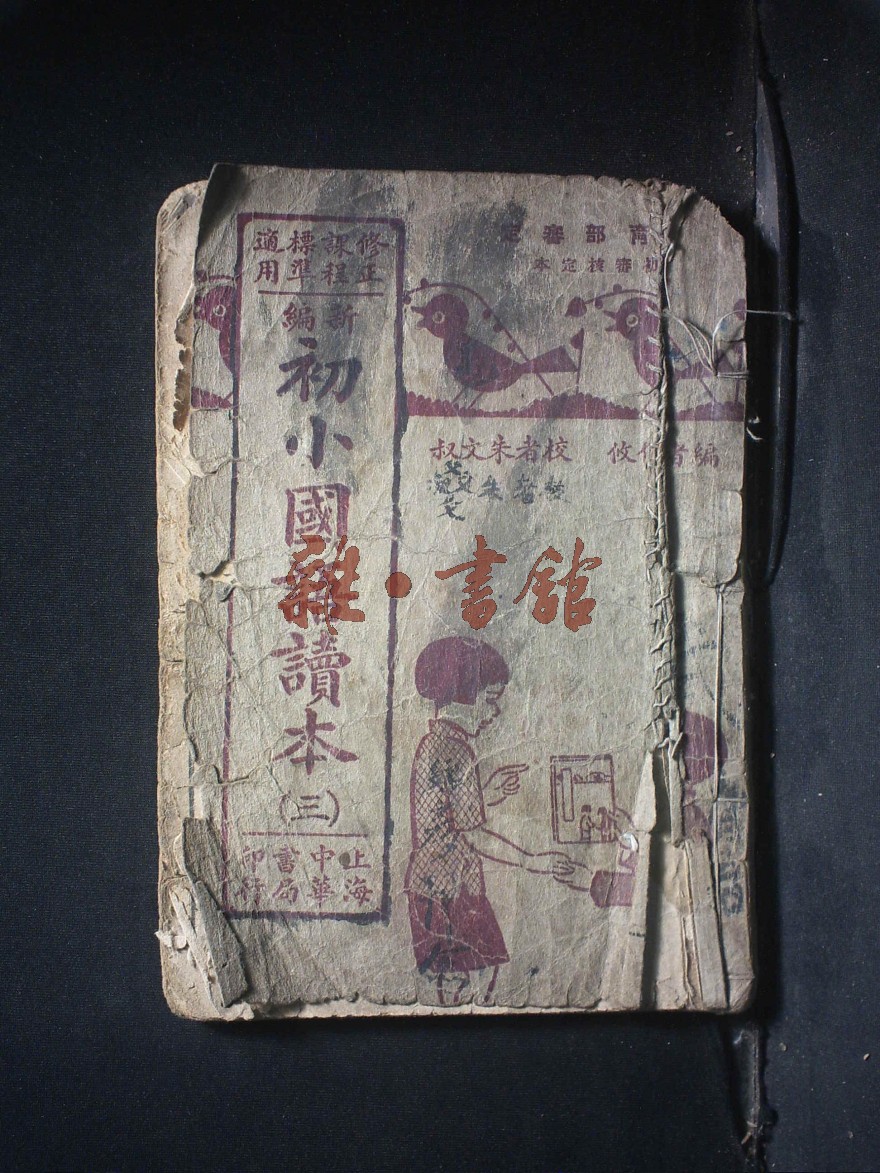 育部審定
初審核定本
編者 攸
校者朱文叔
修正課程標準適用
新編
初小國語讀本
(三)
上海中華書局印行
雜·書館